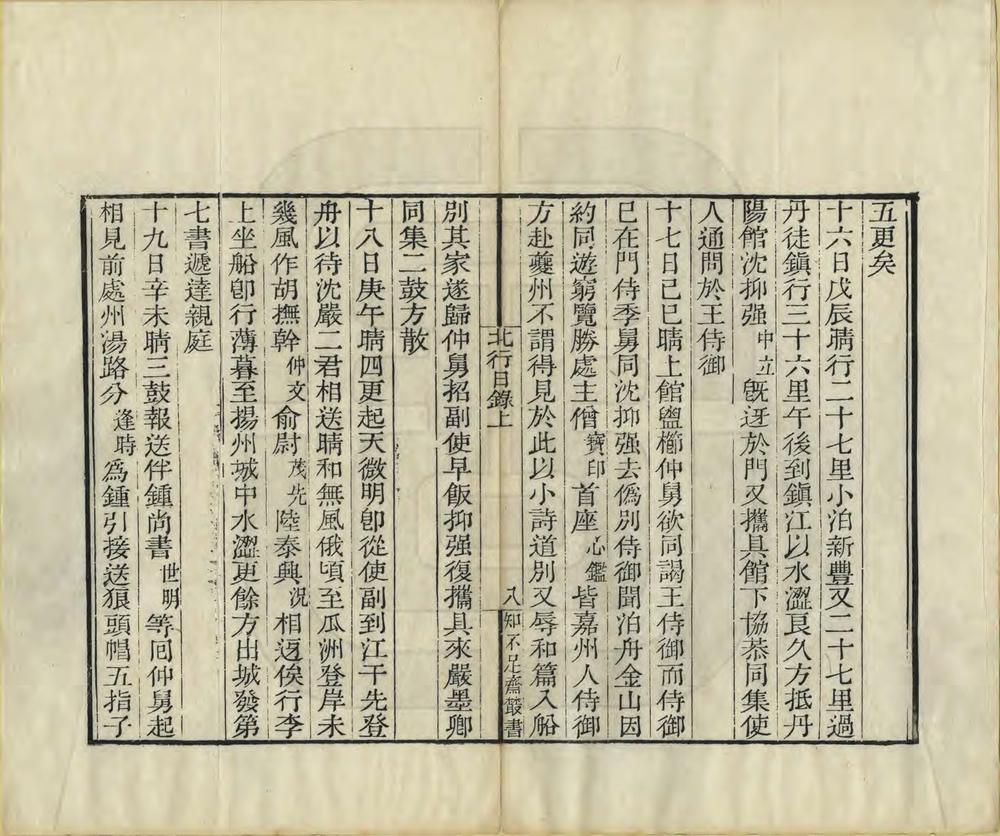 五更矣
十六日戊辰晴行二十七里小泊新豐又二十七里過
丹徒鎮行三十六里午後到鎮江以水澀良久方抵丹
陽館沈抑强中立旣迓於門又攜具館下協恭同集使
人通問於王侍御
十七日己巳晴上館盥櫛仲舅欲同謁王侍御而侍御
已在門侍季舅同沈抑强去僞別侍御聞泊舟金山因
約同遊窮覽勝處主僧寶印首座心鑑皆嘉州人侍御
方赴夔州不謂得見於此以小詩道別又辱和篇入船
北行日錄上
八
知不足齋叢書
別其家遂歸仲舅招副使早飯抑强復攜具來嚴墨卿
同集二鼓方散
十八日庚午晴四更起天微明卽從使副到江干先登
舟以待沈嚴二君相送晴和無風俄頃至瓜洲登岸未
幾風作胡撫幹仲文俞尉茂先陸泰興況相迓俟行李
上坐船卽行薄暮至揚州城中水澀更餘方出城發第
七書遞達親庭
十九日辛未晴三鼓報送伴鍾尚書世明等囘仲舅起
相見前處州湯路分逢時爲鍾引接送狼頭帽五指子